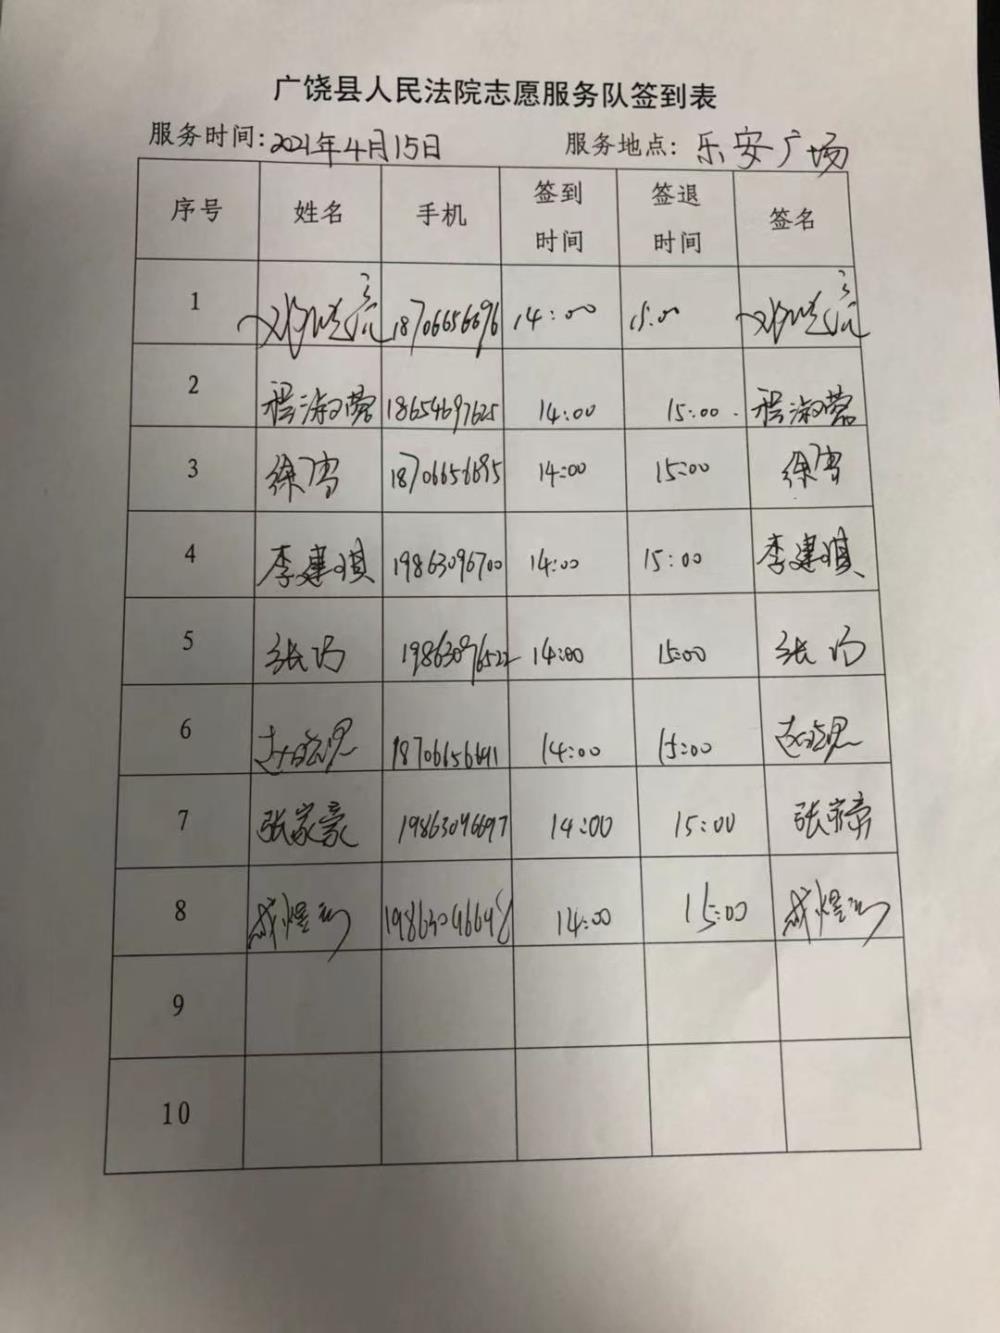 广饶县人民法院志愿服务队签到表
服务时间:2021年4月15日 服务地点:乐安广场
序号 姓名 手机 签到时间 签退时间 签名
1 18706656696 14:00 15:00
2 程淑蓉 18654697625 14:00 15:00. 程淑蓉
3 徐雪 18706656695 14:00 15:00 徐雪
4 李建琪 19863096700 14:00 15:00 李建琪
5 19863096522 14:00 15:00
6 18706656691 14:00 15:00
7 张家豪 19863096697 14:00 15:00 张家豪
8 14:00 15:00
9
10